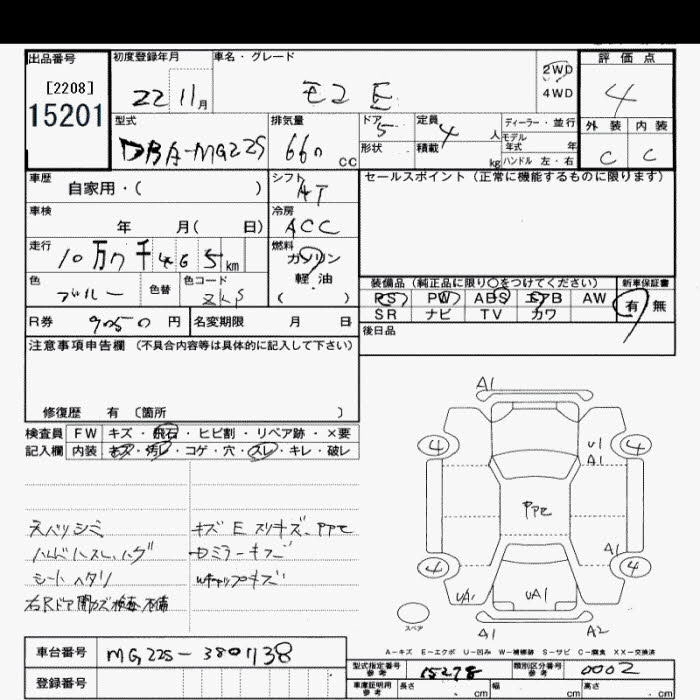 出品番号
[2208]
15201
初度登録年月
22 11月
車名・グレード
モコ E
2WD
4WD
評価点
4
外装 内装
C C
型式
DBA-MG22S
排気量
660 CC
ドア
5
定員
4 人
ディーラー・並行
モデル
年式 年
形状
積載
kg
ハンドル 左・右
車歴
自家用・( )
シフト
AT
セールスポイント(正常に機能するものに限ります)
車検
年 月( 日)
冷房
ACC
走行
10万7千465km
燃料
ガソリン
軽油
( )
色
ブルー
色替
色コード
ZKS
装備品(純正品に限り〇をつけてください)
新車保証書
PS PW ABS エアB AW
SR ナビ TV カワ
有 無
R券 9050円
名変期限 月 日
後日品
注意事項申告欄(不具合内容等は具体的に記入して下さい)
修復歴 有〔箇所 〕
検査員
記入欄
FW キズ・飛石・ヒビ割・リペア跡・×要
内装 キズ・汚レ・コゲ・穴・スレ・キレ・破レ
天バリシミ
ハンドルスレ、ハゲ
シートヘタリ
キズ E スリキズ、PPE
ミラーキズ
A1
4
4
U1
A1
PPE
A1
4
4
UA1
UA1
スペア
A1
A2
A-キズ E-エクボ U-凹み W-補修跡 S-サビ C-腐食 XX-交換済
車台番号
MG22S-380738
登録番号
型式指定番号
参考
15278
類別区分番号
参考
0002
車庫証明用
参考
長さ cm
幅 cm
高さ cm